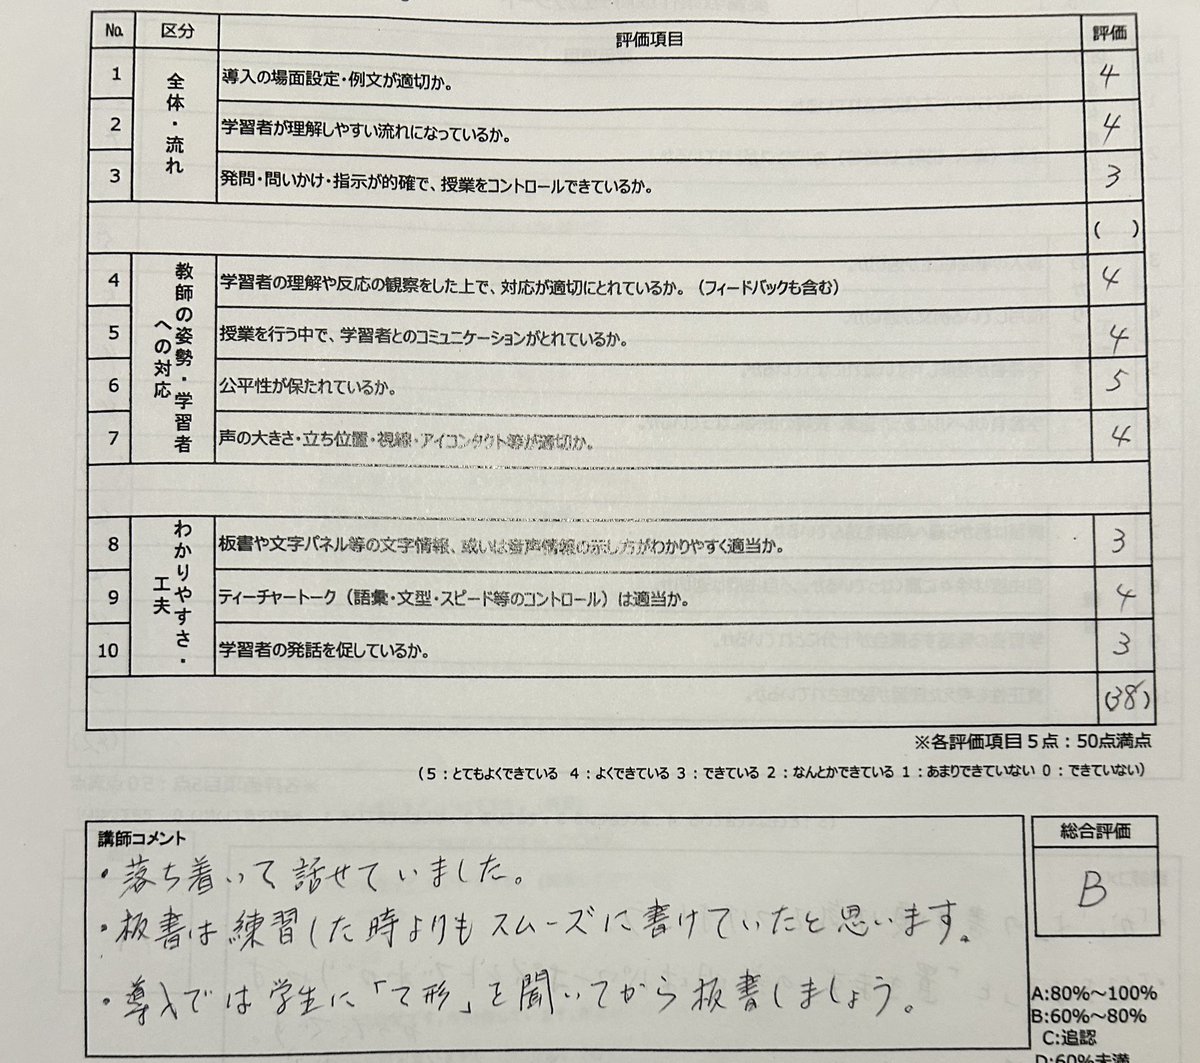 No. 区分 評価項目 評価
全体・流れ
1 導入の場面設定・例文が適切か。 4
2 学習者が理解しやすい流れになっているか。 4
3 発問・問いかけ・指示が的確で、授業をコントロールできているか。 3
( )
教師の姿勢・学習者への対応
4 学習者の理解や反応の観察をした上で、対応が適切にとれているか。(フィードバックも含む) 4
5 授業を行う中で、学習者とのコミュニケーションがとれているか。 4
6 公平性が保たれているか。 5
7 声の大きさ・立ち位置・視線・アイコンタクト等が適切か。 4
わかりやすさ・工夫
8 板書や文字パネル等の文字情報、或いは音声情報の示し方がわかりやすく適当か。 3
9 ティーチャートーク(語彙・文型・スピード等のコントロール)は適当か。 4
10 学習者の発話を促しているか。 3
(38)
※各評価項目5点:50点満点
(5:とてもよくできている 4:よくできている 3:できている 2:なんとかできている 1:あまりできていない 0:できていない)
講師コメント
・落ち着いて話せていました。
・板書は練習した時よりもスムーズに書けていたと思います。
・導入では学生に「て形」を聞いてから板書しましょう。
総合評価
B
A:80%〜100%
B:60%〜80%
C:追認
D:60%未満